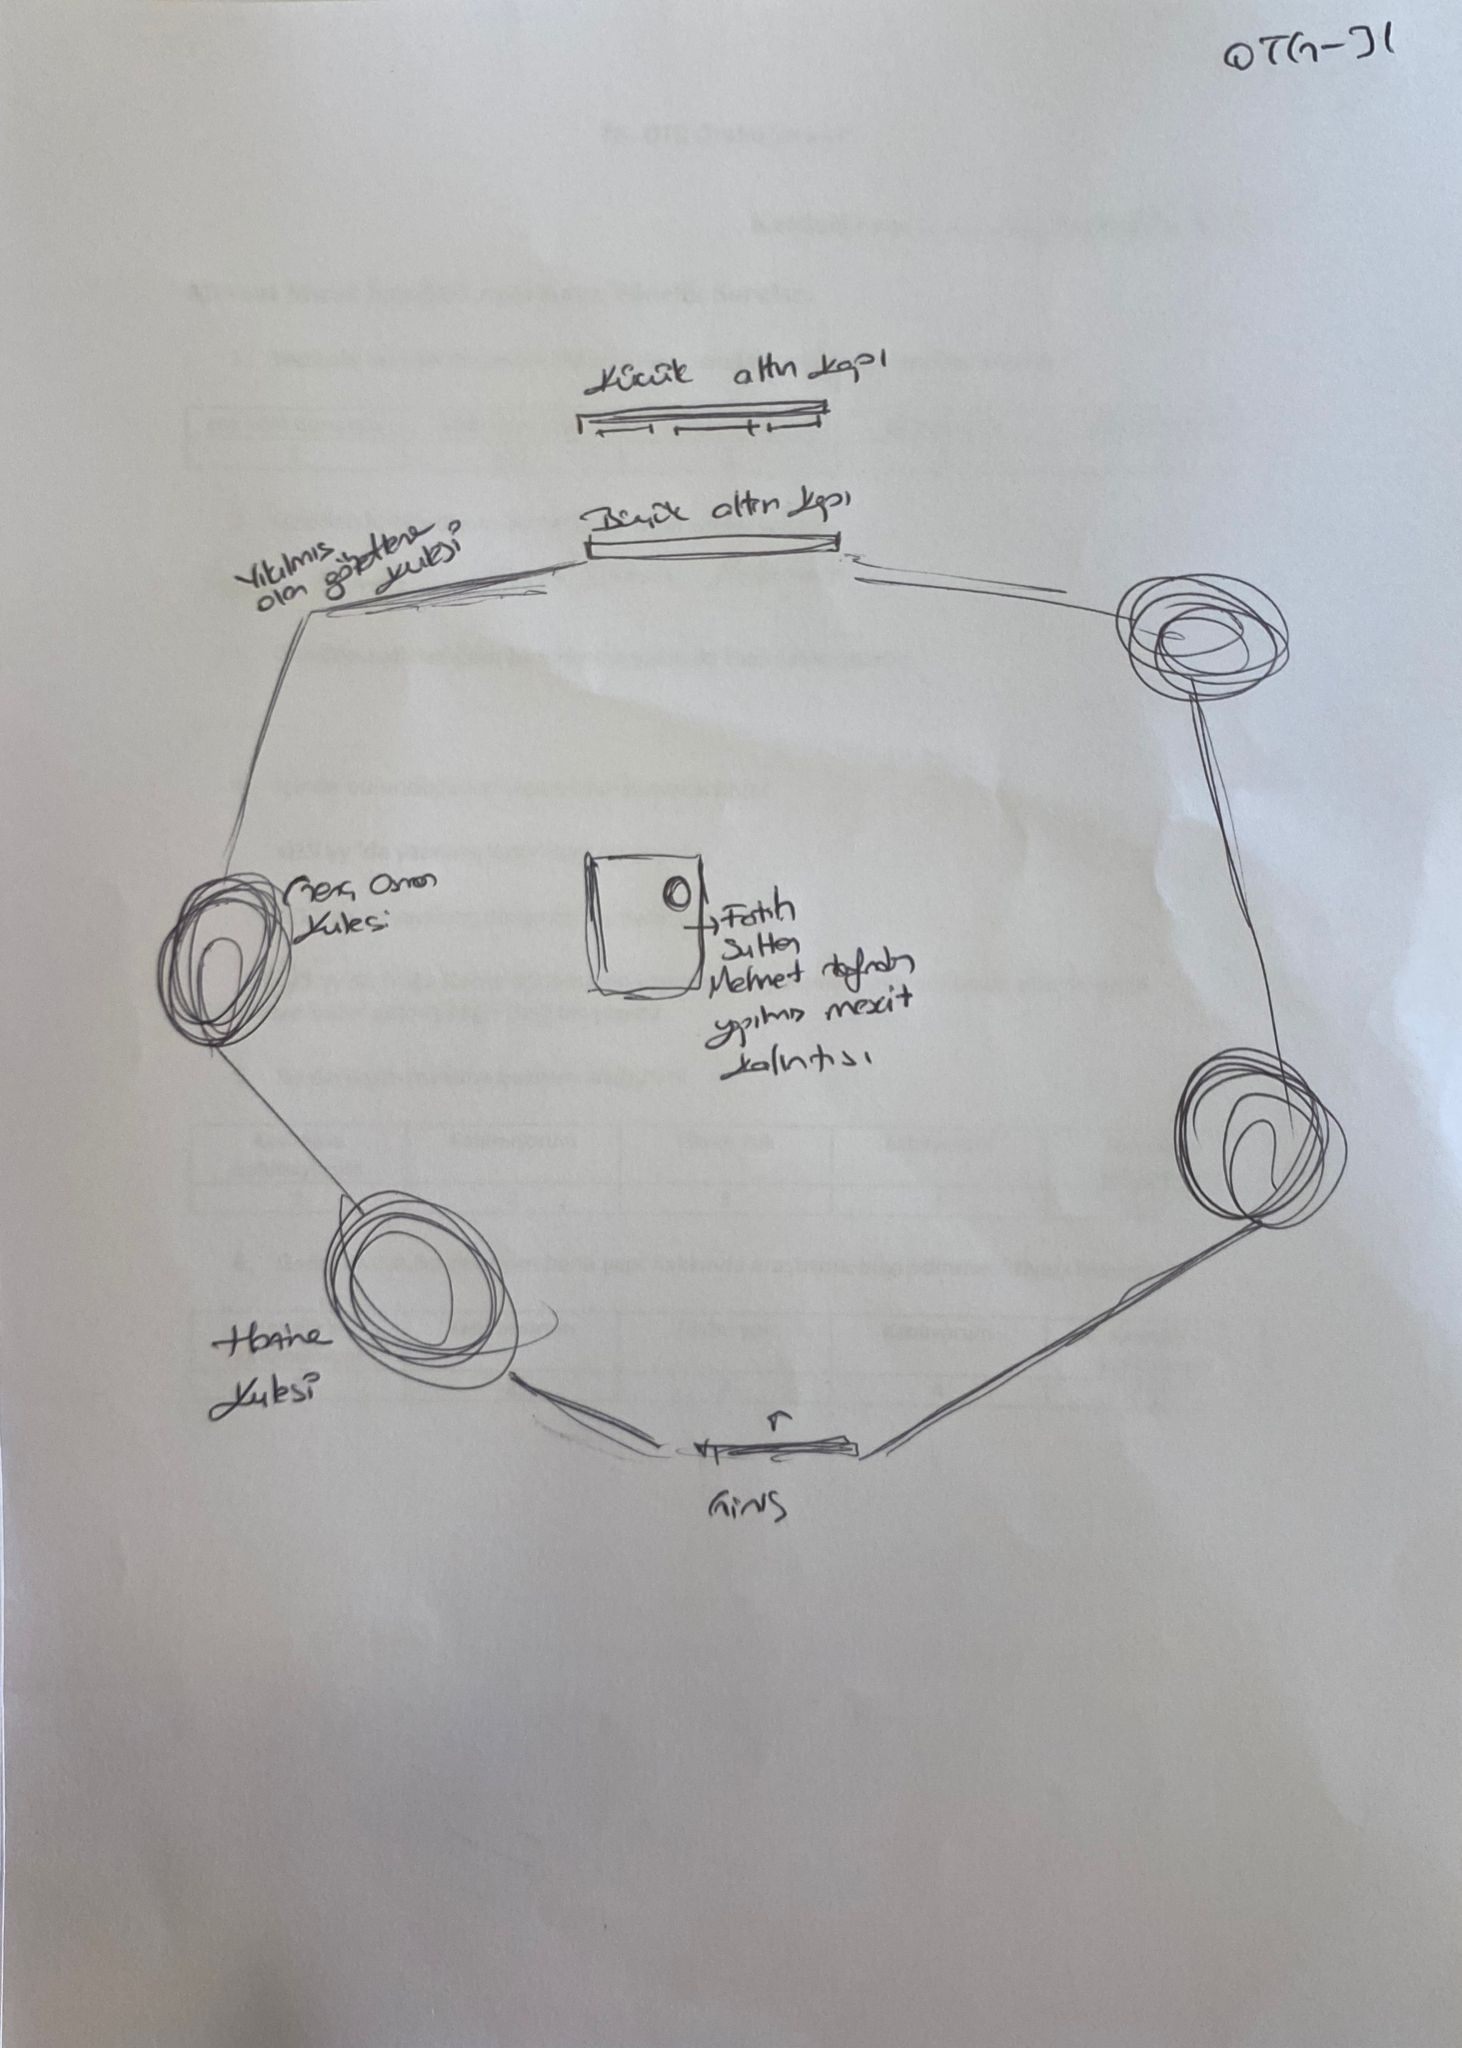 Küçük altın kapı
Büyük altın kapı
Yıkılmış
olan gözetleme
kulesi
Genç Osman
Kulesi
Fatih
Sultan
Mehmet tarafından
yapılmış mescit
kalıntısı
Hazine
Kulesi
Giriş